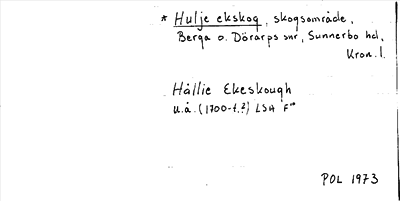 * Hulje ekskog, skogsområde,
Berga o. Dörarps snr, Sunnerbo hd,
Kron. l.
Hållie Ekeskough
u.å. (1700-t.?) LSA F"
POL 1973